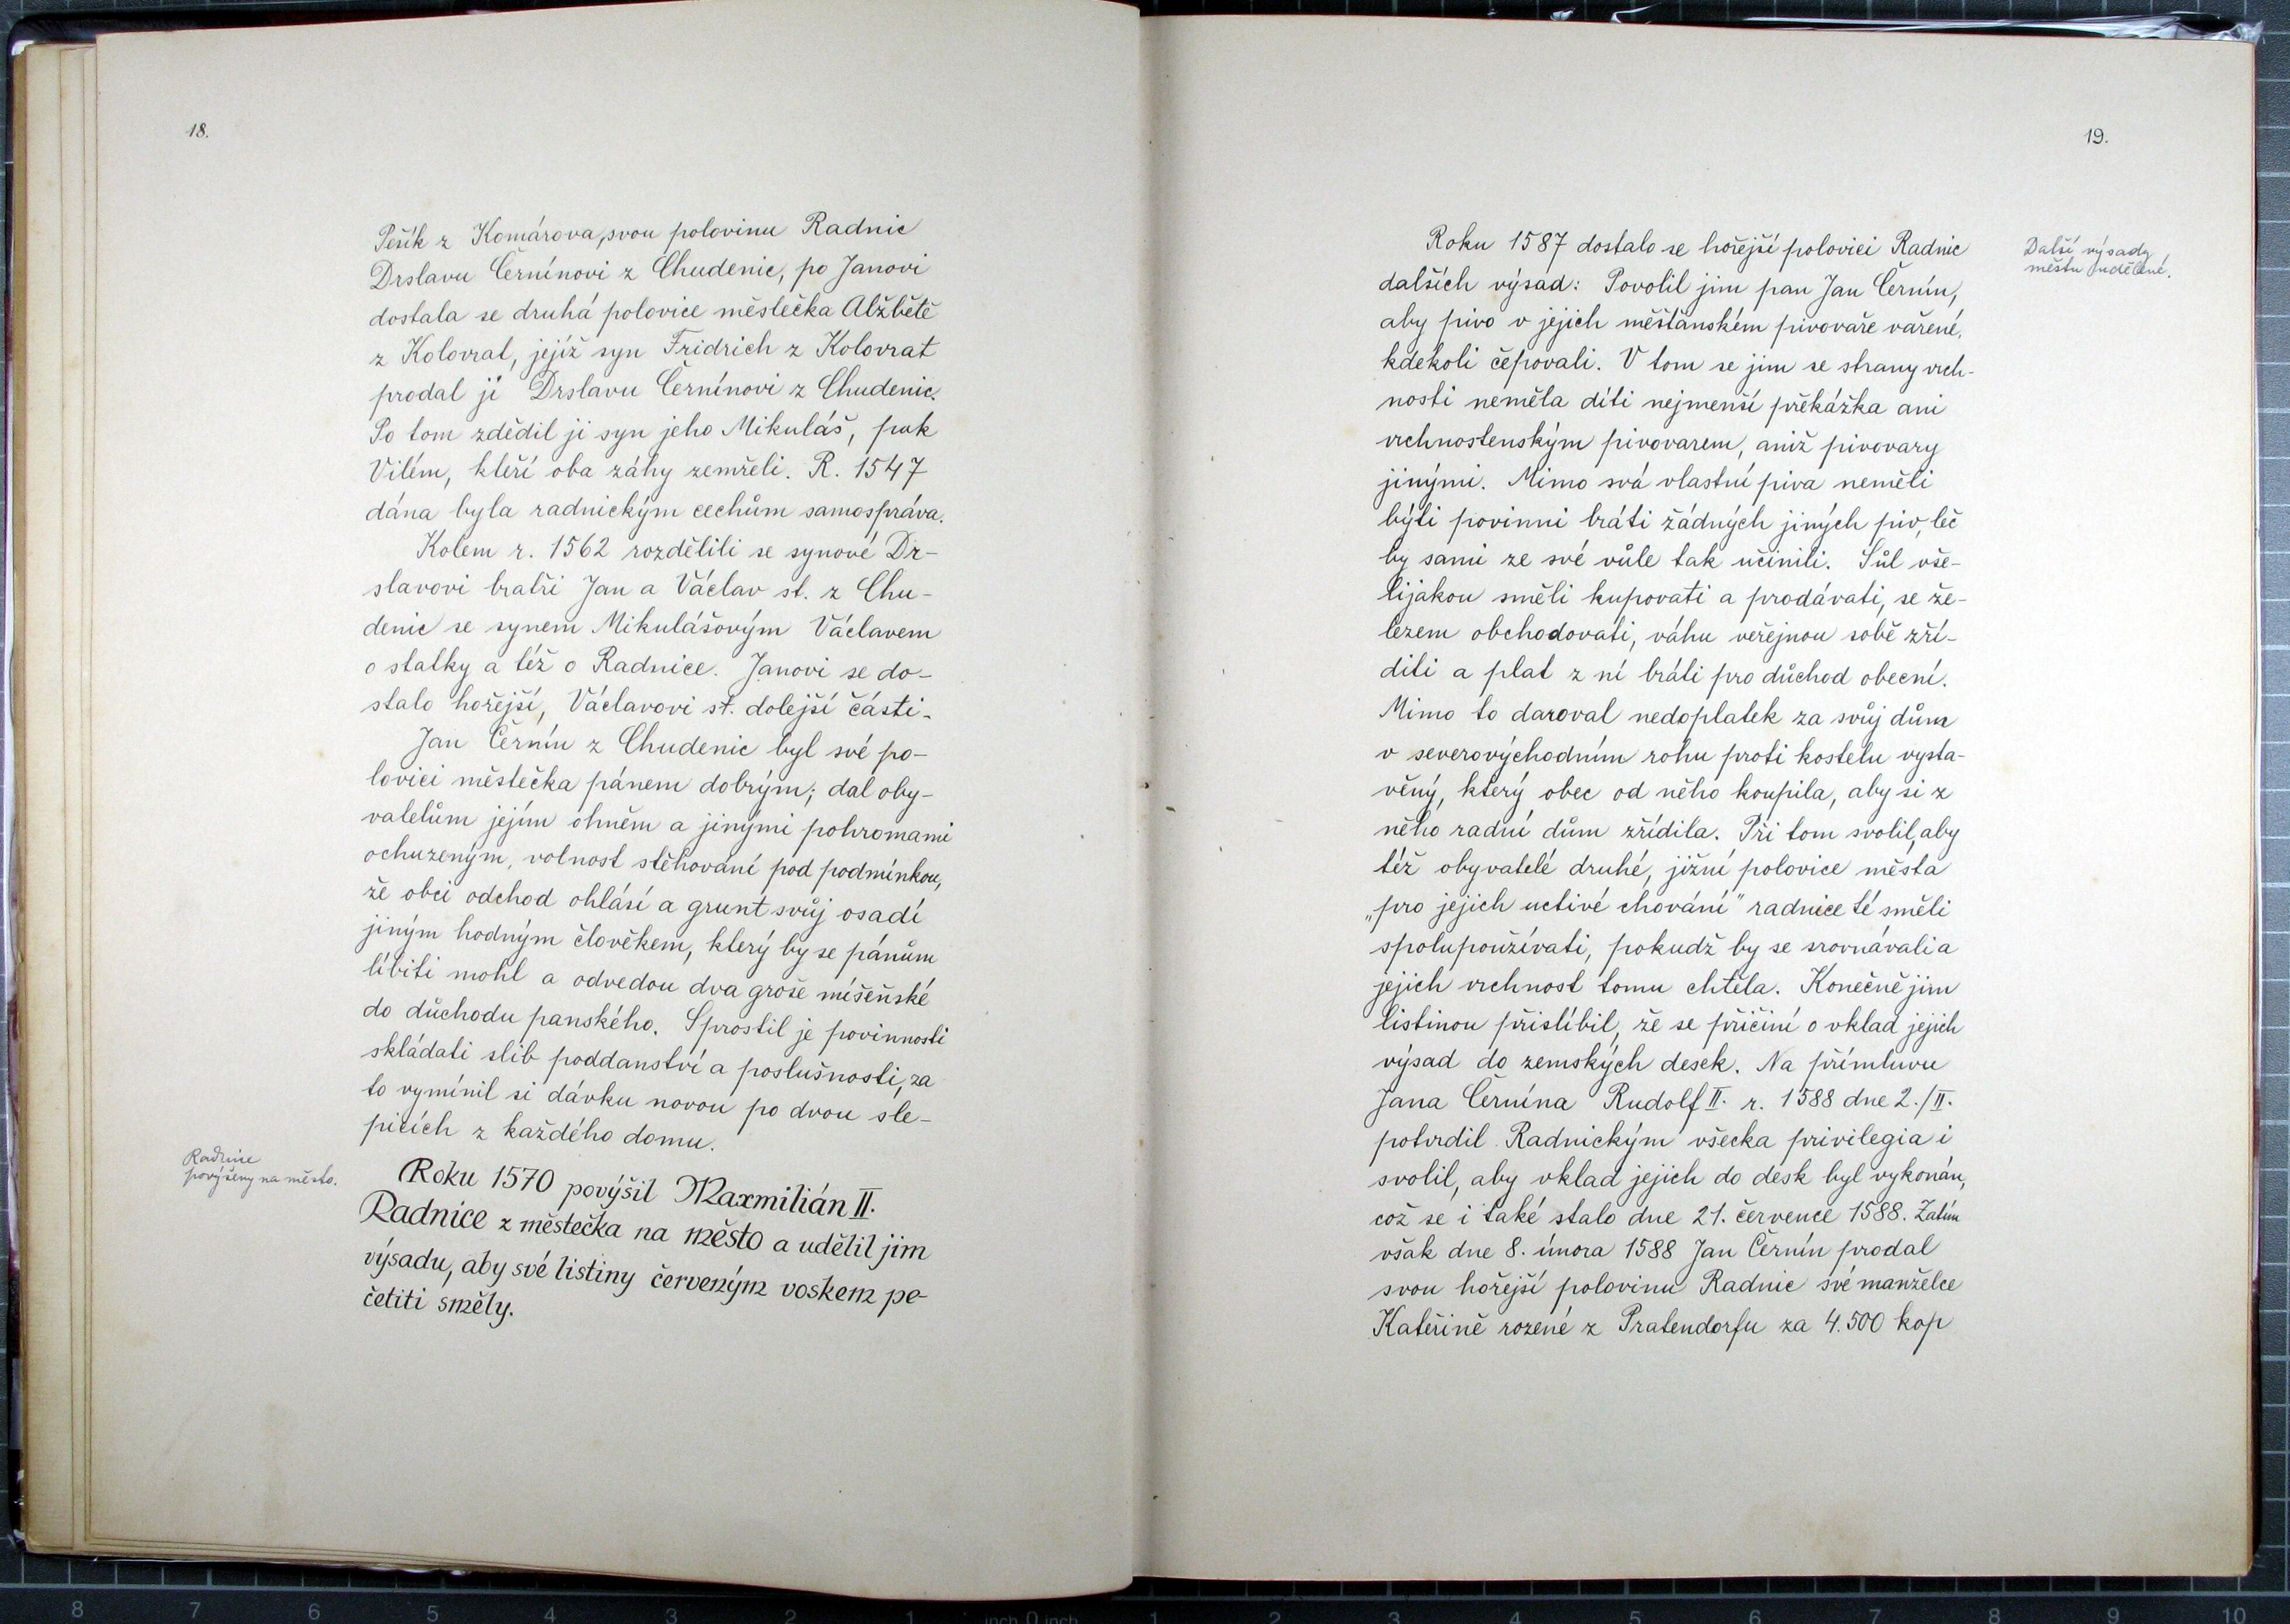 18.
Pešík z Komárova, svou polovinu Radnic
Drslavu Černínovi z Chudenic, po Janovi
dostala se druhá polovice městečka Alžbětě
z Kolovrat, jejíž syn Fridrich z Kolovrat
prodal ji Drslavu Černínovi z Chudenic.
Po tom zdědil ji syn jeho Mikuláš, pak
Vilém, kteří oba záhy zemřeli. R. 1547
dána byla radnickým cechům samospráva.
Kolem r. 1562 rozdělili se synové Dr-
slavovi bratři Jan a Václav st. z Chu-
denic se synem Mikulášovým Václavem
o statky a též o Radnice. Janovi se do-
stalo hořejší, Václavovi st. dolejší části.
Jan Černín z Chudenic byl své po-
lovici městečka pánem dobrým; dal oby-
vatelům jejím ohněm a jinými pohromami
ochuzeným, volnost stěhování pod podmínkou,
že obci odchod ohlásí a grunt svůj osadí
jiným hodným člověkem, který by se pánům
líbiti mohl a odvedou dva groše míšeňské
do důchodu panského. Sprostil je povinnosti
skládati slib poddanství a poslušnosti, za
to vymínil si dávku novou po dvou sle-
picích z každého domu.
Radnice
povýšeny na město.
Roku 1570 povýšil Maxmilián II.
Radnice z městečka na město a udělil jim
výsadu, aby své listiny červeným voskem pe-
četiti směly.
19.
Další výsady
městu udělené.
Roku 1587 dostalo se hořejší polovici Radnic
dalších výsad: Povolil jim pan Jan Černín,
aby pivo v jejich měšťanském pivovaře vařené,
kdekoli čepovali. V tom se jim se strany vrch-
nosti neměla díti nejmenší překážka ani
vrchnostenským pivovarem, aniž pivovary
jinými. Mimo svá vlastní piva neměli
býti povinni bráti žádných jiných piv, leč
by sami ze své vůle tak učinili. Sůl vše-
lijakou směli kupovati a prodávati, se že-
lezem obchodovati, váhu veřejnou sobě zří-
diti a plat z ní bráti pro důchod obecní.
Mimo to daroval nedoplatek za svůj dům
v severovýchodním rohu proti kostelu vysta-
věný, který obec od něho koupila, aby si z
něho radní dům zřídila. Při tom svolil, aby
též obyvatelé druhé, jižní polovice města
„pro jejich uctivé chování" radnice té směli
spolupoužívati, pokudž by se srovnávali a
jejich vrchnost tomu chtěla. Konečně jim
listinou přislíbil, že se přičiní o vklad jejich
výsad do zemských desek. Na přímluvu
Jana Černína Rudolf II. r. 1588 dne 2./II.
potvrdil Radnickým všecka privilegia i
svolil, aby vklad jejich do desk byl vykonán,
což se i také stalo dne 21. července 1588. Zatím
však dne 8. února 1588 Jan Černín prodal
svou hořejší polovinu Radnic své manželce
Kateřině rozené z Pratendorfu za 4.500 kop
8 7 6 5 4 3 2 1 inch 0 inch 1 2 3 4 5 6 7 8 9 10